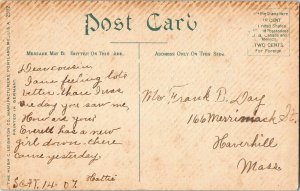 Post Card
MESSAGE MAY BE WRITTEN ON THIS SIDE.
ADDRESS ONLY ON THIS SIDE.
Place Stamp Here
1 CENT
United States
TWO CENTS
For Foreign
Dear cousin
I am feeling lots
better than I was
the day you saw me,
How are you?
Everett has a new
girl down there
came yesterday.
Hattie
Sept. 14. 07.
Mr Frank D. Day
166 Merrimack St.
Haverhill
Mass.